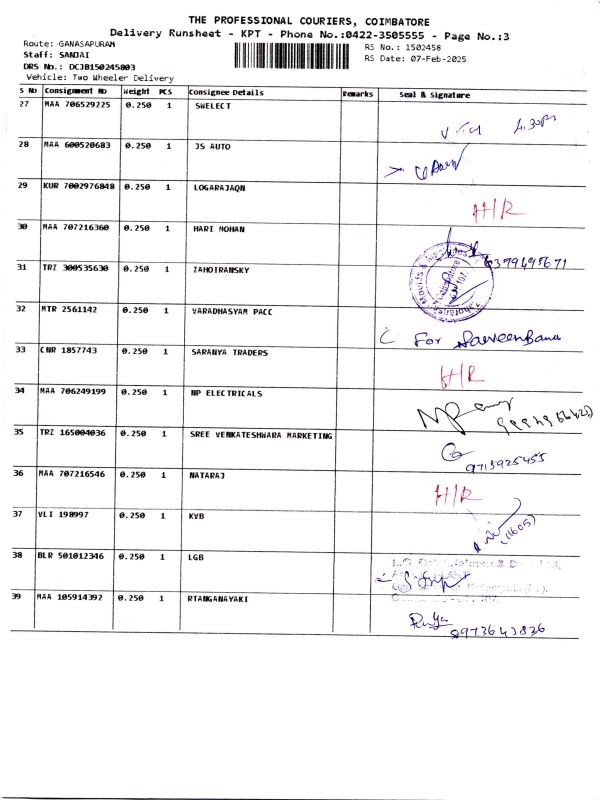 THE PROFESSIONAL COURIERS, COIMBATORE
Delivery Runsheet - KPT - Phone No.:0422-3505555 - Page No.:3
Route: GANASAPURAM
RS No.: 1502458
Staff: SANJAI
RS Date: 07-Feb-2025
DRS No.: DCJB150245803
Vehicle: Two Wheeler Delivery
S No Consignment No Weight PCS Consignee Details Remarks Seal & Signature
27 MAA 706529225 0.250 1 SWELECT 4.30pm
28 MAA 600520683 0.250 1 JS AUTO
29 KUR 7002976848 0.250 1 LOGARAJAQN H/R
30 MAA 707216360 0.250 1 HARI MOHAN
31 TRZ 300535630 0.250 1 ZAHOIRANSKY
32 MTR 2561142 0.250 1 VARADHASYAM PACC For Parveen Banu
33 CNR 1857743 0.250 1 SARANYA TRADERS H/R
34 MAA 706249199 0.250 1 NP ELECTRICALS
35 TRZ 165004036 0.250 1 SREE VENKATESHWARA MARKETING 9713925455
36 MAA 707216546 0.250 1 NATARAJ H/R
37 VLI 198997 0.250 1 KVB (11605)
38 BLR 501012346 0.250 1 LGB
39 MAA 105914392 0.250 1 RTANGANAYAKI 8973643836